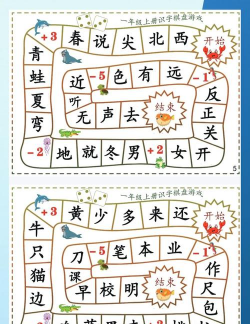 一年级上册识字棋盘游戏
+3 春 说 尖 北 西 开始
青 近 -5 色 有 远 -1
蛙 听 反
夏 无 声 去 结束 正
弯 关
-2 地 就 冬 男 +2 女 开
5
一年级上册识字棋盘游戏
+3 黄 少 多 来 还 开始
牛
只 刀 -5 笔 本 业 -1
猫 课 作
边 早 校 明 结束 尺
包